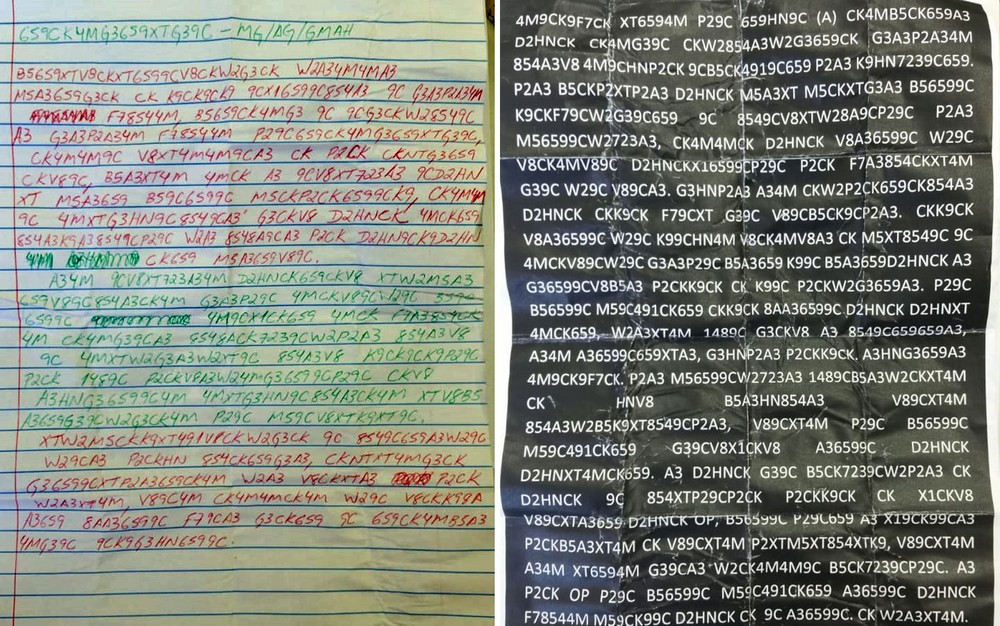 659CK4MG3659XTG39C – MG/AG/GMAH
B5659XTV8CKXT6599CV8CKW2G3CK W2A34M4MA3
M5A3659G3CK CK K9CK9CK9 9CX16599C854A3 9C G3A3P2A34M
F78544M, B5659CK4MG3 9C 9CG3CKW28549C
A3 G3A3P2A34M F78544M P29C659CK4MG3659XTG39C,
CK4M4M9C V8XT4M4M9CA3 CK P2CK CKNTG3659
CKV89C, B5A3XT4M 4MCK A3 9CV8XT723A3 9CD2HN
XT M5A3659 B59C6599C M5CKP2CK6599CK9, CK4M4M
9C 4MXTG3HN9C8549CA3 G3CKV8 D2HNCK 4MCK659
854A3K9A38549CP29C W2A3 8548A9CA3 P2CK D2HN9CK9D2HN
CK659 M5A3659V89C.
A34M 9CV8XT723A34M D2HNCK659CKV8 XTW2M5A3
659V89C854A3CK4M G3A3P29C 4MCKV89CW29C
6599C 4M9CX1CK659 4MCK F7A3854CK
4M CK4MG39CA3 8548ACK7239CW2P2A3 854A3V8
9C 4MXTW2G3A3W2XT9C 854A3V8 K9CK9CK9P29C
P2CK 1489C P2CKV8A3W24MG36599CP29C CKV8
A3HNG36599C 4MXTG3HN9C854A3CK4M XTV8B5
A3659G39CW2G3CK4M P29C M59CV8XTK9XT9C.
XTW2M5CKK9XT491V8CKW2G3CK 9C 8549C659A3W29C
W29CA3 P2CKHN 854CK659G3A3, CKNTXT4MG3CK
G36599CXTP2A3659CK4M W2A3 V8CKXTA3 P2CK
W2A3XT4M, V89C4M CK4M4MCK4M W29C V8CKK98A
A3659 8AA36599C F79CA3 G3CK659 9C 659CK4MB5A3
4MG39C 9CK9G3HN6599C.
4M9CK9F7CK XT6594M P29C 659HN9C (A) CK4MB5CK659A3
D2HNCK CK4MG39C CKW2854A3W2G3659CK G3A3P2A34M
854A3V8 4M9CHNP2CK 9CB5CK4919C659 P2A3 K9HN7239C659.
P2A3 B5CKP2XTP2A3 D2HNCK M5A3XT M5CKXTG3A3 B56599C
K9CKF79CW2G39C659 9C 8549CV8XTW28A9CP29C P2A3
M56599CW2723A3, CK4M4MCK D2HNCK V8A36599C W29C
V8CK4MV89C D2HNCKX16599CP29C P2CK F7A3854CKXT4M
G39C W29C V89CA3. G3HNP2A3 A34M CKW2P2CK659CK854A3
D2HNCK CKK9CK F79CXT G39C V89CB5CK9CP2A3. CKK9CK
V8A36599C W29C K99CHN4M V8CK4MV8A3 CK M5XT8549C 9C
4MCKV89CW29C G3A3P29C B5A3659 K99C B5A3659D2HNCK A3
G36599CV8B5A3 P2CKK9CK CK K99C P2CKW2G3659A3. P29C
B56599C M59C491CK659 CKK9CK 8AA36599C D2HNCK D2HNXT
4MCK659, W2A3XT4M 1489C G3CKV8 A3 8549C659659A3,
A34M A36599C659XTA3, G3HNP2A3 P2CKK9CK. A3HNG3659A3
4M9CK9F7CK. P2A3 M56599CW2723A3 1489CB5A3W2CKXT4M
CK HNV8 B5A3HN854A3 V89CXT4M
854A3W2B5K9XT8549CP2A3, V89CXT4M P29C B56599C
M59C491CK659 G39CV8X1CKV8 A36599C D2HNCK
D2HNXT4MCK659. A3 D2HNCK G39C B5CK7239CW2P2A3 CK
D2HNCK 9C 854XTP29CP2CK P2CKK9CK CK X1CKV8
V89CXTA3659 D2HNCK OP, B56599C P29C659 A3 X19CK99CA3
P2CKB5A3XT4M CK V89CXT4M P2XTM5XT854XTK9, V89CXT4M
A34M XT6594M G39CA3 W2CK4M4M9C B5CK7239CP29C. A3
P2CK OP P29C B56599C M59C491CK659 A36599C D2HNCK
F78544M M59CK99C D2HNCK CK 9C A36599C. CK W2A3XT4M.